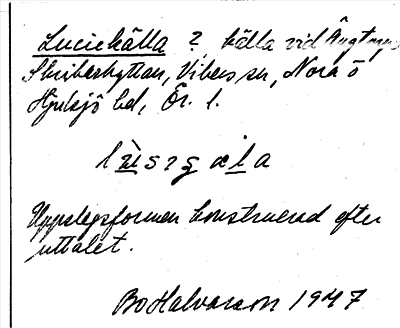 Luciekälla ? källa vid
Skriberhyttan, Vikers sn, Nora o
Hjulsjö bd, Ör. l.
Uppslagsformen konstruerad efter
uttalet.
Bo Halvarsson 1947